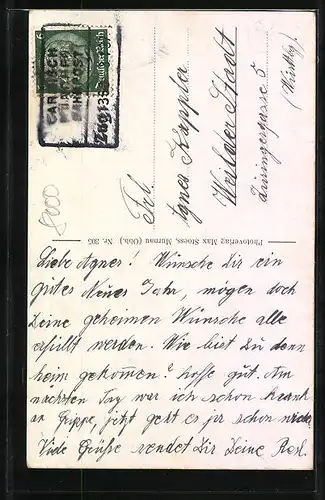 GARMISCH
MÜNCHEN
BAHNPOST
Zug 38
Deutsches Reich
8000
Frl.
Agnes Kappler
Weilder Stadt
Zwingergasse 5
(Wüttbg.)
Photoverlag Max Stoess, Murnau (Obb.), Nr. 395
Liebe Agnes! Wünsche Dir ein
gutes Neues Jahr, mögen doch
Deine geheimen Wünsche alle
erfüllt werden. Wie bist Du denn
heim gekommen? hoffe gut. Am
nächsten Tag war ich schon krank
an Grippe, jetzt geht es ja schon wieder.
Viele Grüße sendet Dir Deine Resl.